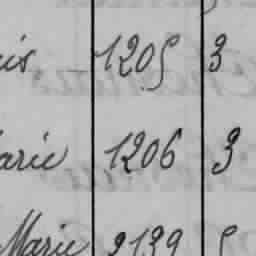 1205 3
arie 1206 3
Marie 2139